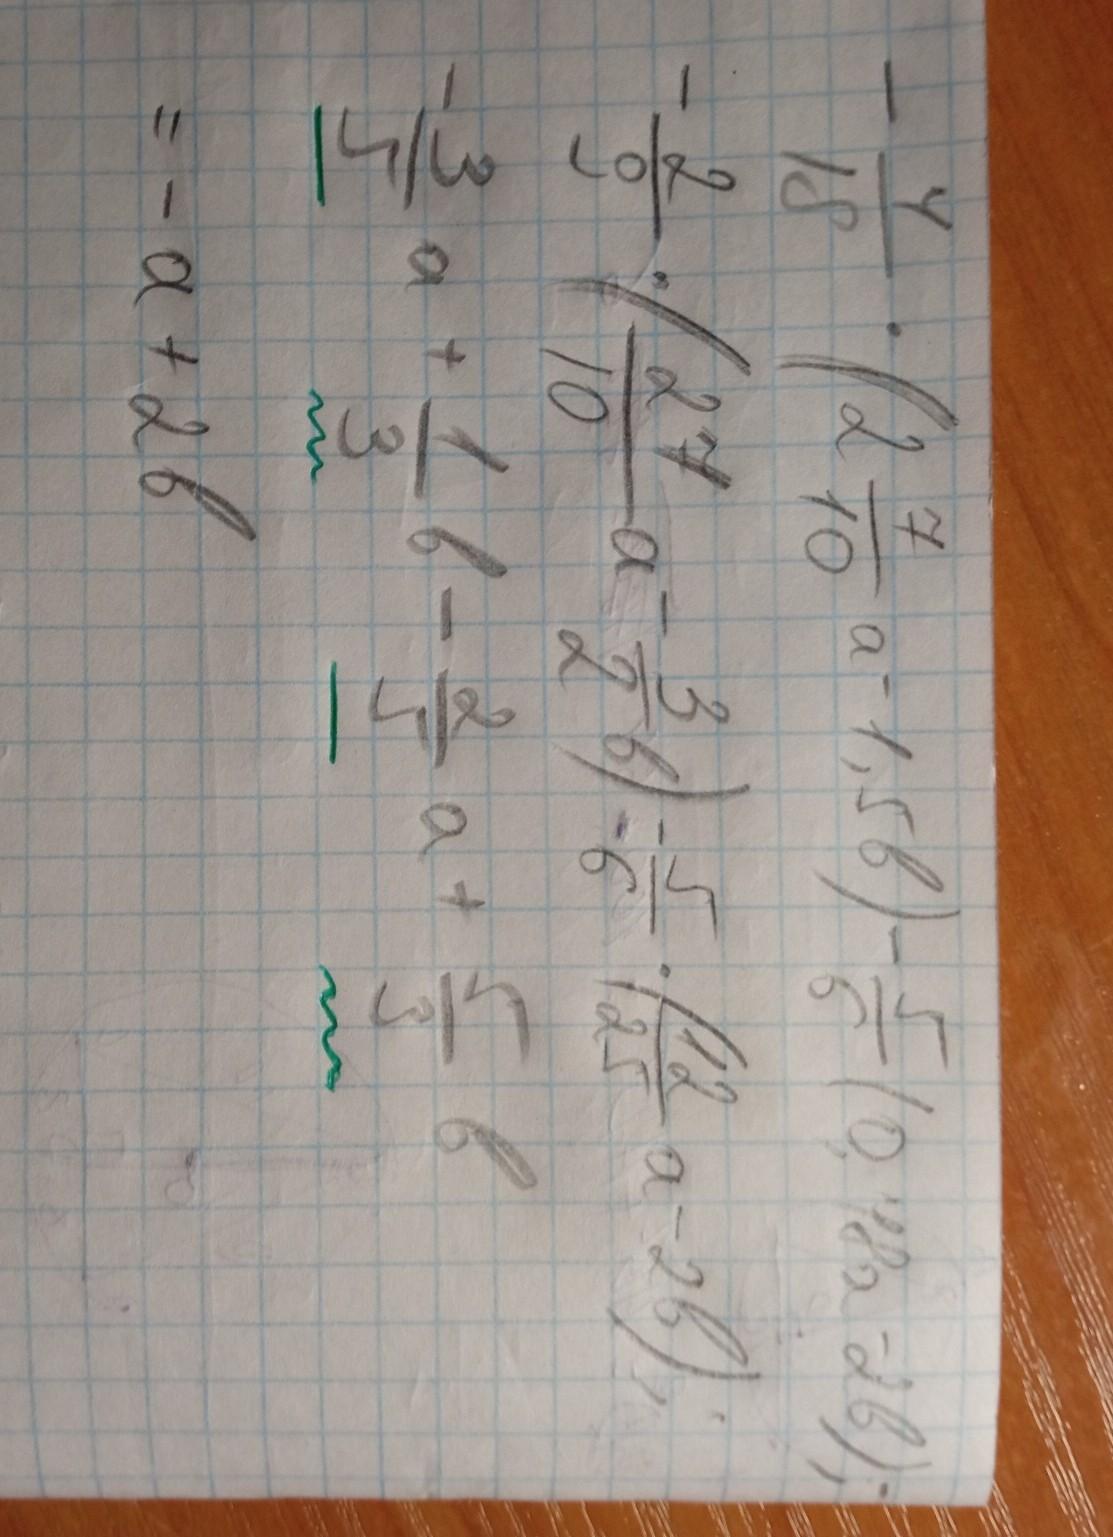 - 4/18 · (2 7/10 a - 1,5b) - 5/6 (0,48a - 2b);
- 2/9 · (27/10 a - 3/2 b) - 5/6 · (12/25 a - 2b);
- 3/5 a + 1/3 b - 2/5 a + 5/3 b
= - a + 2b